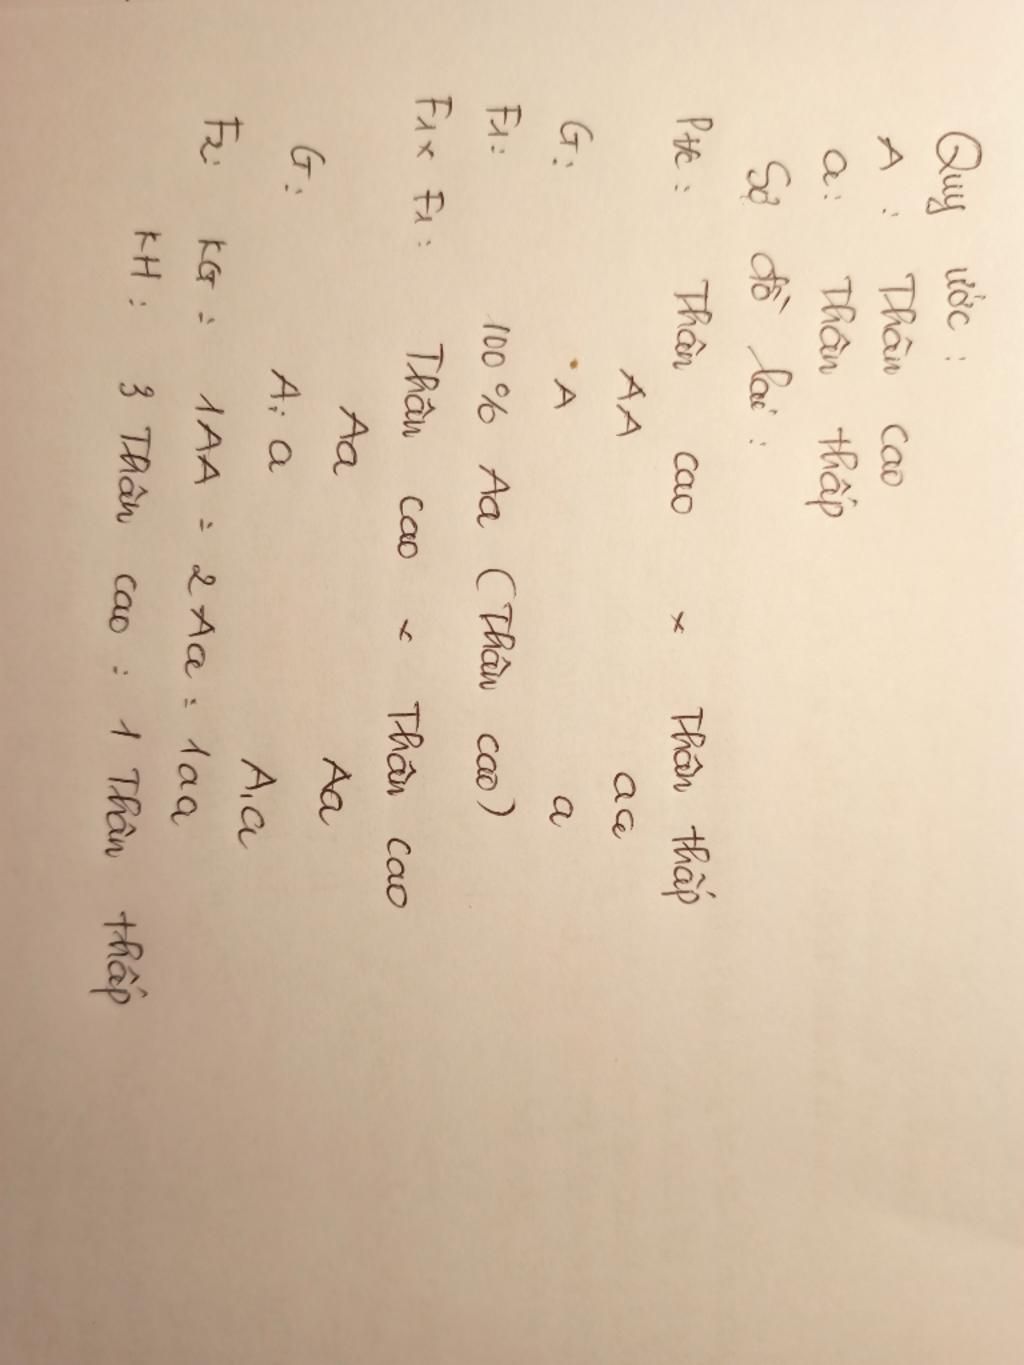 Quy ước :
A : Thân cao
a : Thân thấp
Sơ đồ lai :
Ptc : Thân cao x Thân thấp
AA aa
G : A a
F1 : 100% Aa (Thân cao)
F1 x F1 : Thân cao x Thân cao
Aa Aa
G : A; a A, a
F2 : KG : 1AA : 2Aa : 1aa
KH : 3 Thân cao : 1 Thân thấp